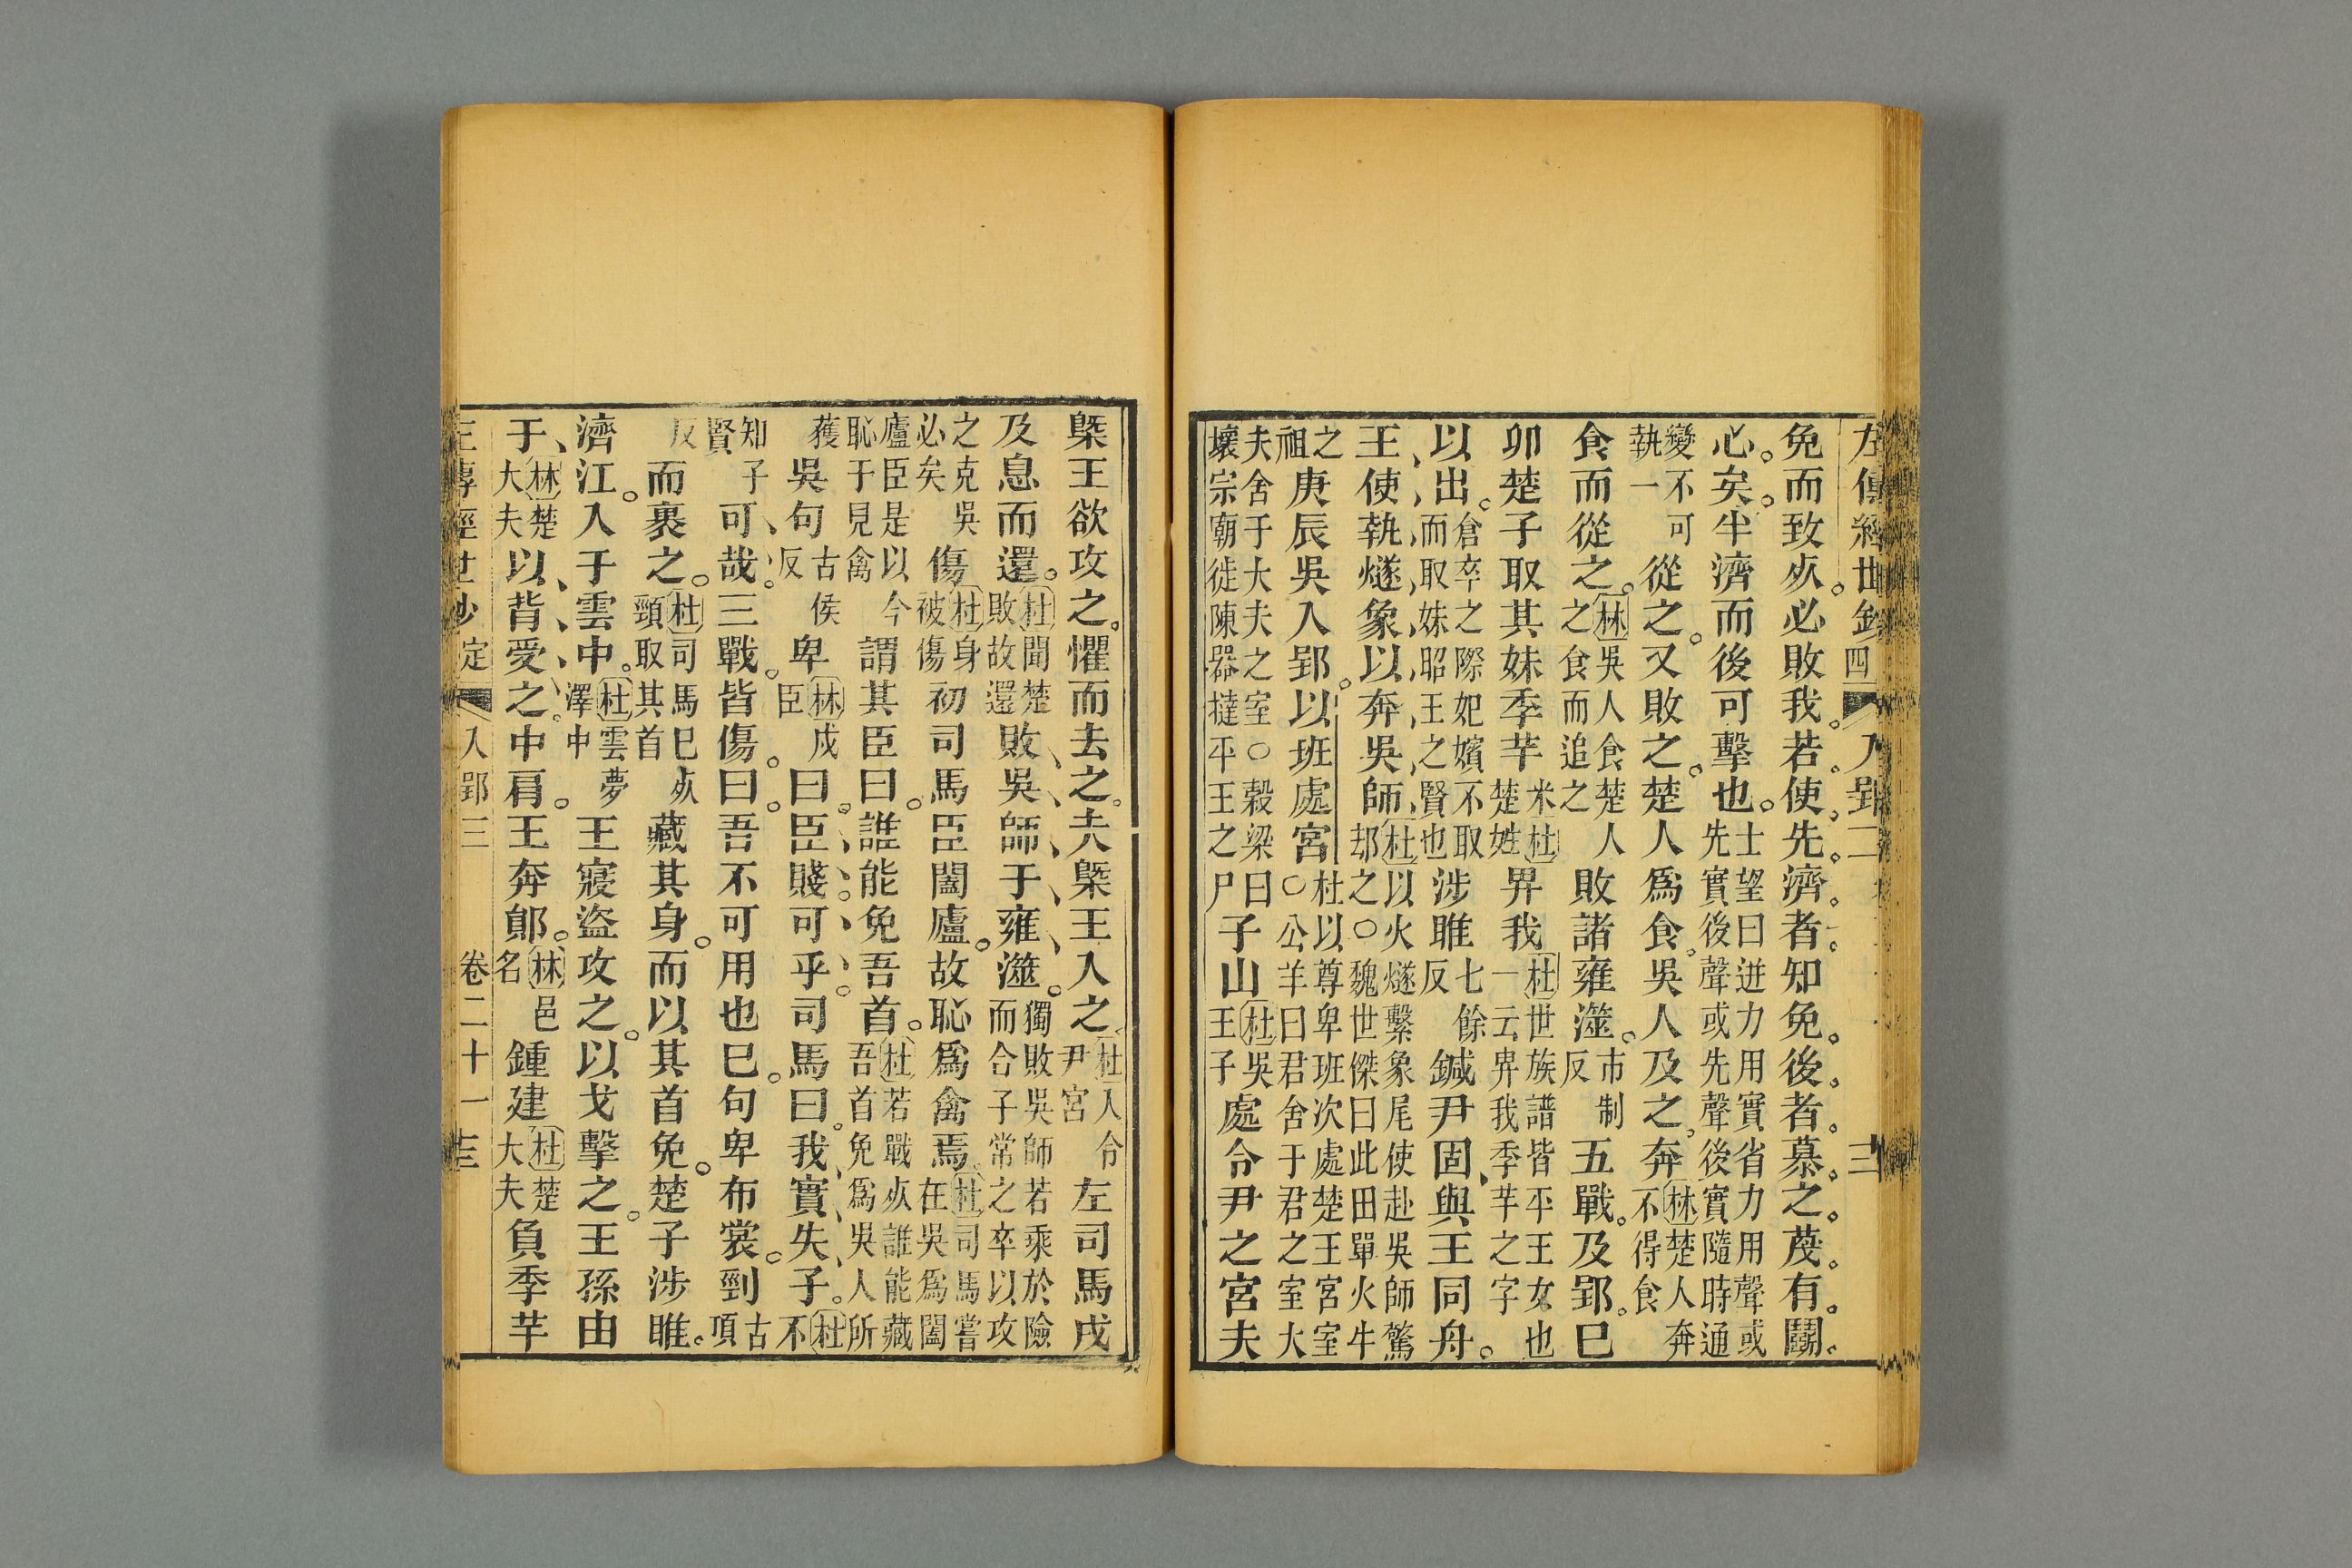 左傳經世鈔 定四 入郢二 十三
免而致死必敗我若使先濟者知免後者慕之蔑有鬬
心矣半濟而後可擊也士望曰迸力用實省力用聲或先實後聲或先聲後實隨時通
變不可執一從之又敗之楚人爲食吳人及之奔林楚人奔不得食
食而從之林吳人食楚人之食而追之敗諸雍澨市制反五戰及郢己
卯楚子取其妹季芊米楚姓杜畀我杜世族譜皆平王女也一云畀我季芊之字
以出倉卒之際妃嬪不取而取妹昭王之賢也涉睢七餘反鍼尹固與王同舟
王使執燧象以奔吳師杜以火燧繫象尾使赴吳師驚却之○魏世傑曰此田單火牛
之祖庚辰吳入郢以班處宮杜以尊卑班次處楚王宮室○公羊曰君舍于君之室大
夫舍于大夫之室○穀梁曰壞宗廟徙陳器撻平王之尸子山杜吳王子處令尹之宮夫
槩王欲攻之懼而去之夫槩王入之杜入令尹宮左司馬戌
及息而還杜聞楚敗故還敗吳師于雍澨獨敗吳師若乘於險而合子常之卒以攻
之克吳必矣傷杜身被傷初司馬臣闔廬故恥爲禽焉杜司馬嘗在吳爲闔
廬臣是以今恥于見禽謂其臣曰誰能免吾首杜若戰死誰能藏吾首免爲吳人所
獲吳句古侯反卑林戍臣曰臣賤可乎司馬曰我實失子杜不
知子賢可哉三戰皆傷曰吾不可用也已句卑布裳剄古頂
反而裹之杜司馬已死剄取其首藏其身而以其首免楚子涉睢
濟江入于雲中杜雲夢澤中王寢盜攻之以戈擊之王孫由
于林楚大夫以背受之中肩王奔鄖林邑名鍾建杜楚大夫負季芊
左傳經世鈔 定 入郢三 卷二十一 十三